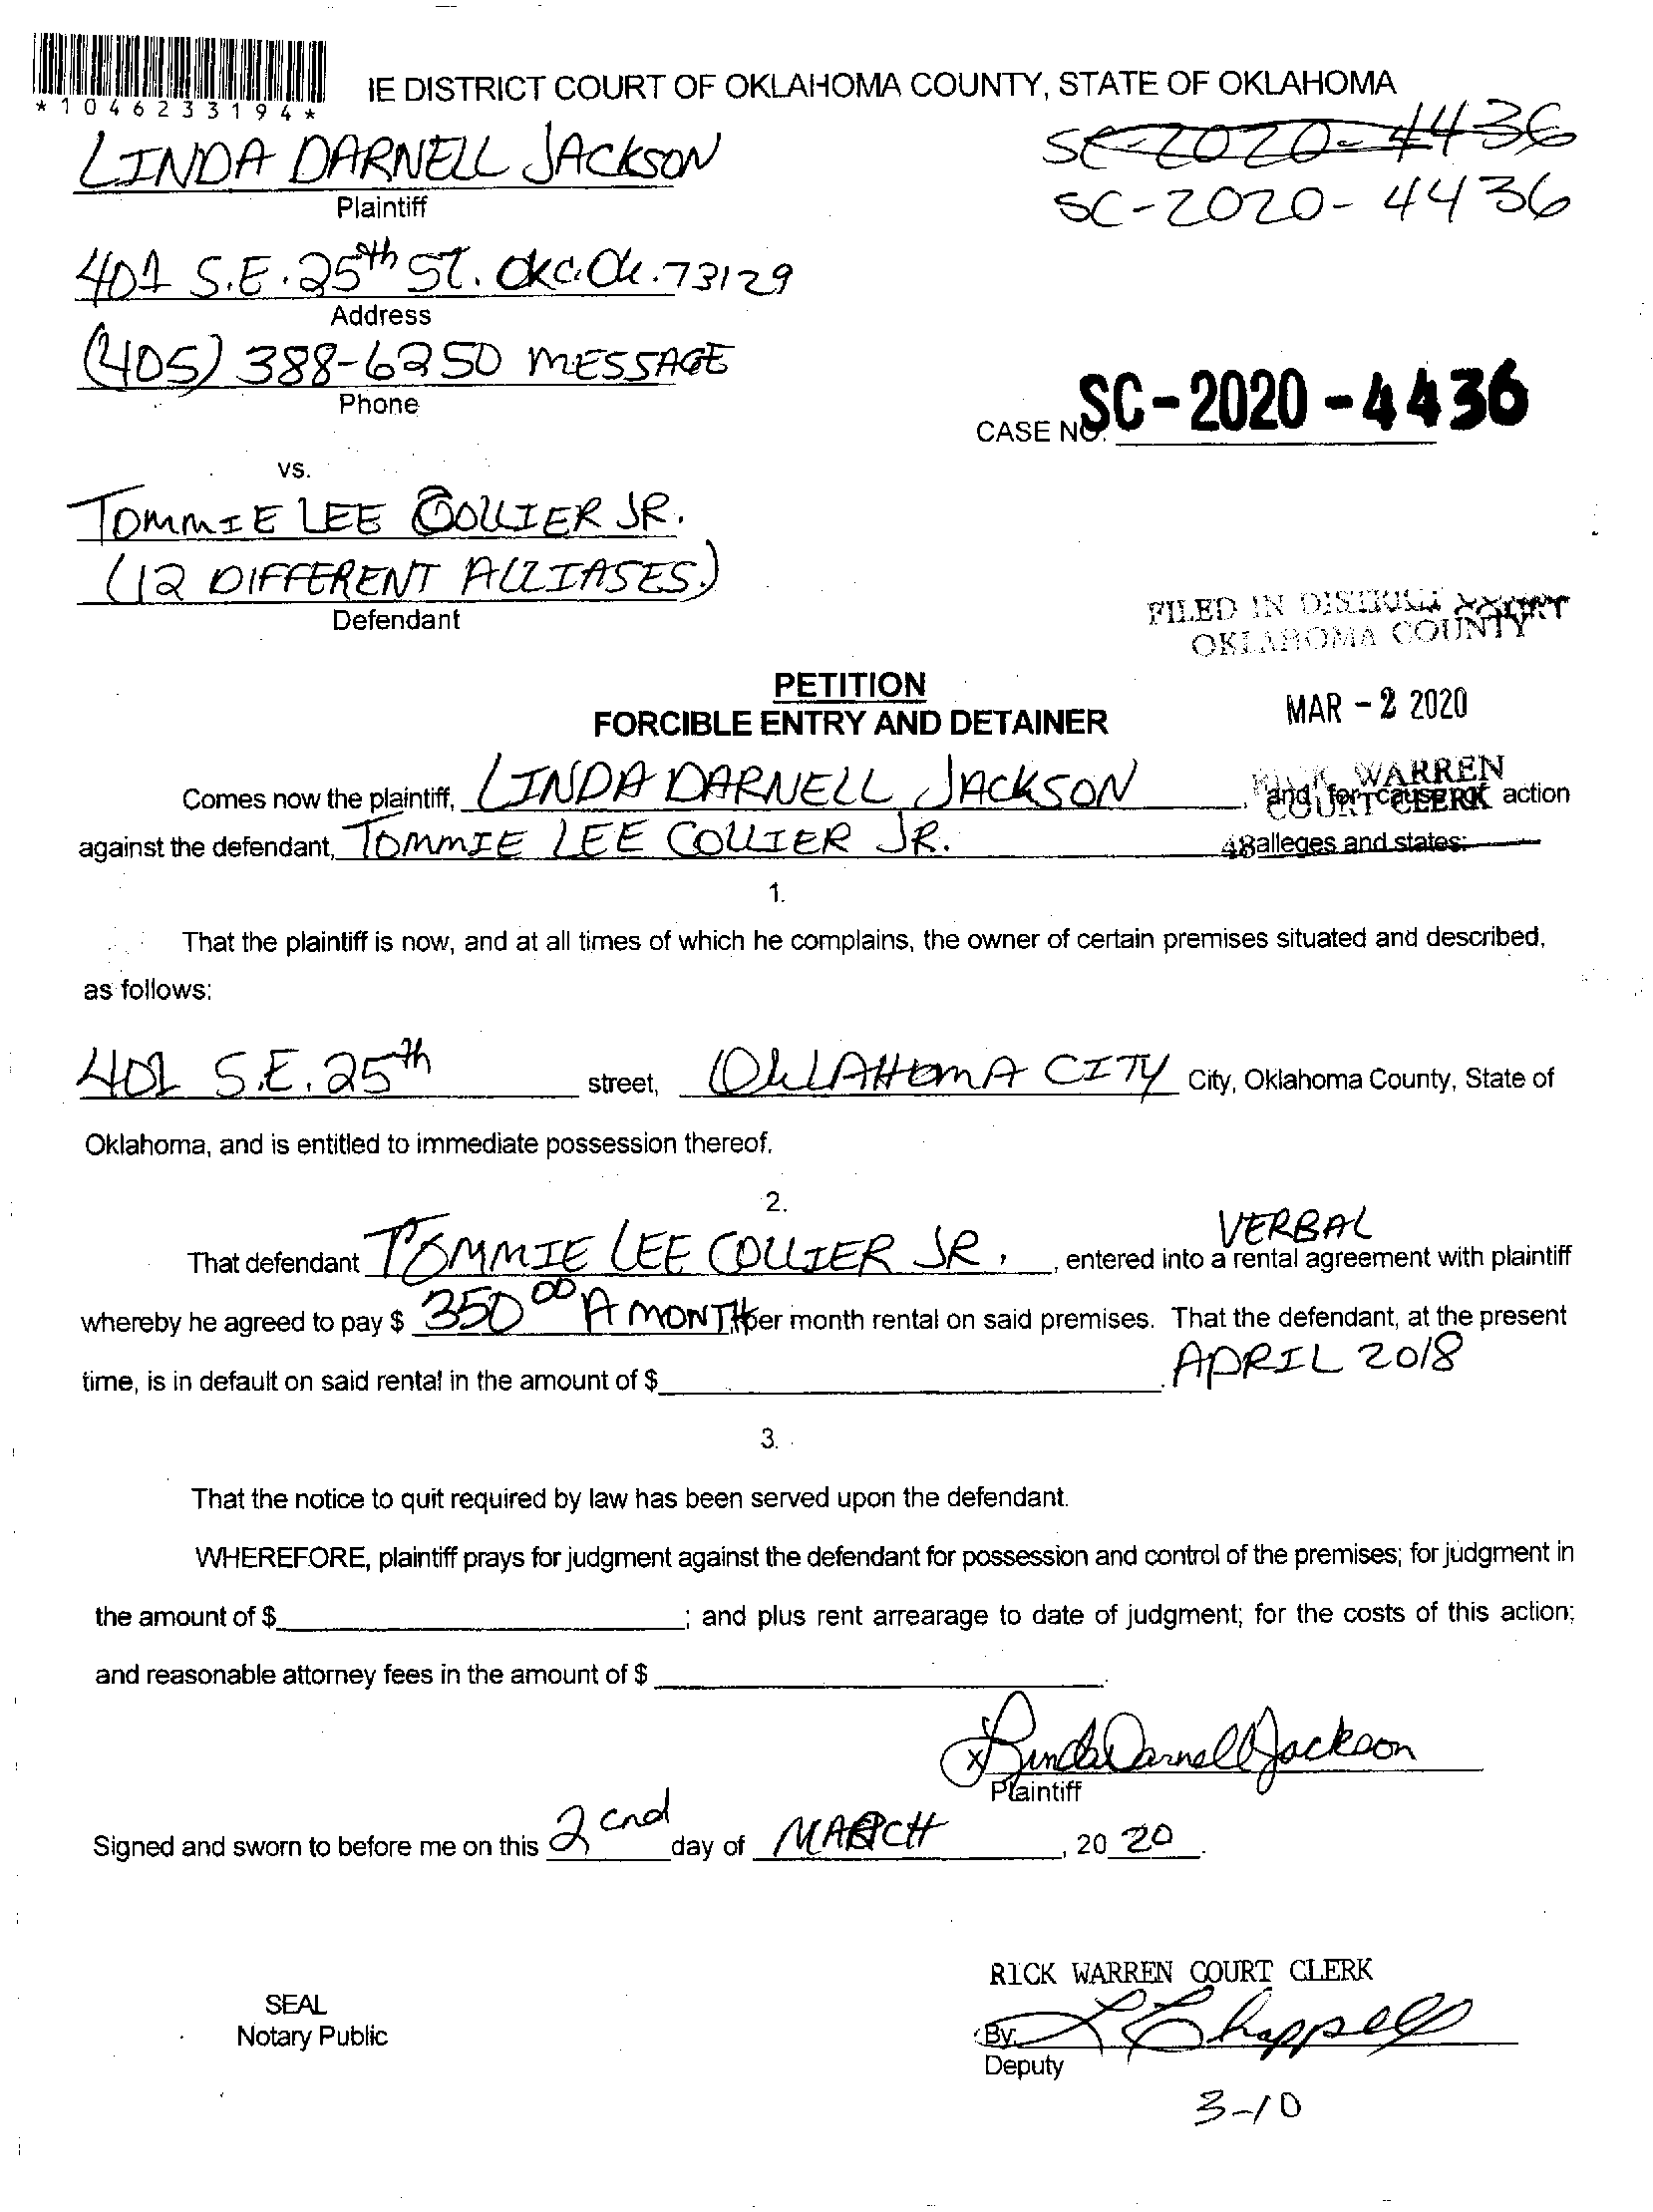 *1046233194*
IE DISTRICT COURT OF OKLAHOMA COUNTY, STATE OF OKLAHOMA
LINDA DARNELL JACKSON
SC-2020-4436
Plaintiff
SC-2020-4436
401 S.E. 25th ST. OKC. Ok. 73129
Address
(405) 388-6250 MESSAGE
Phone
CASE NO. SC-2020-4436
vs.
TOMMIE LEE COLLIER JR.
(12 DIFFERENT ALLIASES.)
Defendant
FILED IN DISTRICT COURT
OKLAHOMA COUNTY
PETITION
FORCIBLE ENTRY AND DETAINER
MAR - 2 2020
RICK WARREN
COURT CLERK
Comes now the plaintiff, LINDA DARNELL JACKSON, and for cause of action
against the defendant, TOMMIE LEE COLLIER JR. alleges and states:
48
1.
That the plaintiff is now, and at all times of which he complains, the owner of certain premises situated and described,
as follows:
401 S.E. 25th street, OKLAHOMA CITY City, Oklahoma County, State of
Oklahoma, and is entitled to immediate possession thereof.
2.
VERBAL
That defendant TOMMIE LEE COLLIER JR., entered into a rental agreement with plaintiff
whereby he agreed to pay $ 350 00 A MONTH per month rental on said premises. That the defendant, at the present
time, is in default on said rental in the amount of $ . APRIL 2018
3.
That the notice to quit required by law has been served upon the defendant.
WHEREFORE, plaintiff prays for judgment against the defendant for possession and control of the premises; for judgment in
the amount of $ ; and plus rent arrearage to date of judgment; for the costs of this action;
and reasonable attorney fees in the amount of $ .
x Linda Darnell Jackson
Plaintiff
Signed and sworn to before me on this 2cnd day of MARCH, 20 20.
RICK WARREN COURT CLERK
SEAL
Notary Public
By: L Chappell
Deputy
3-10